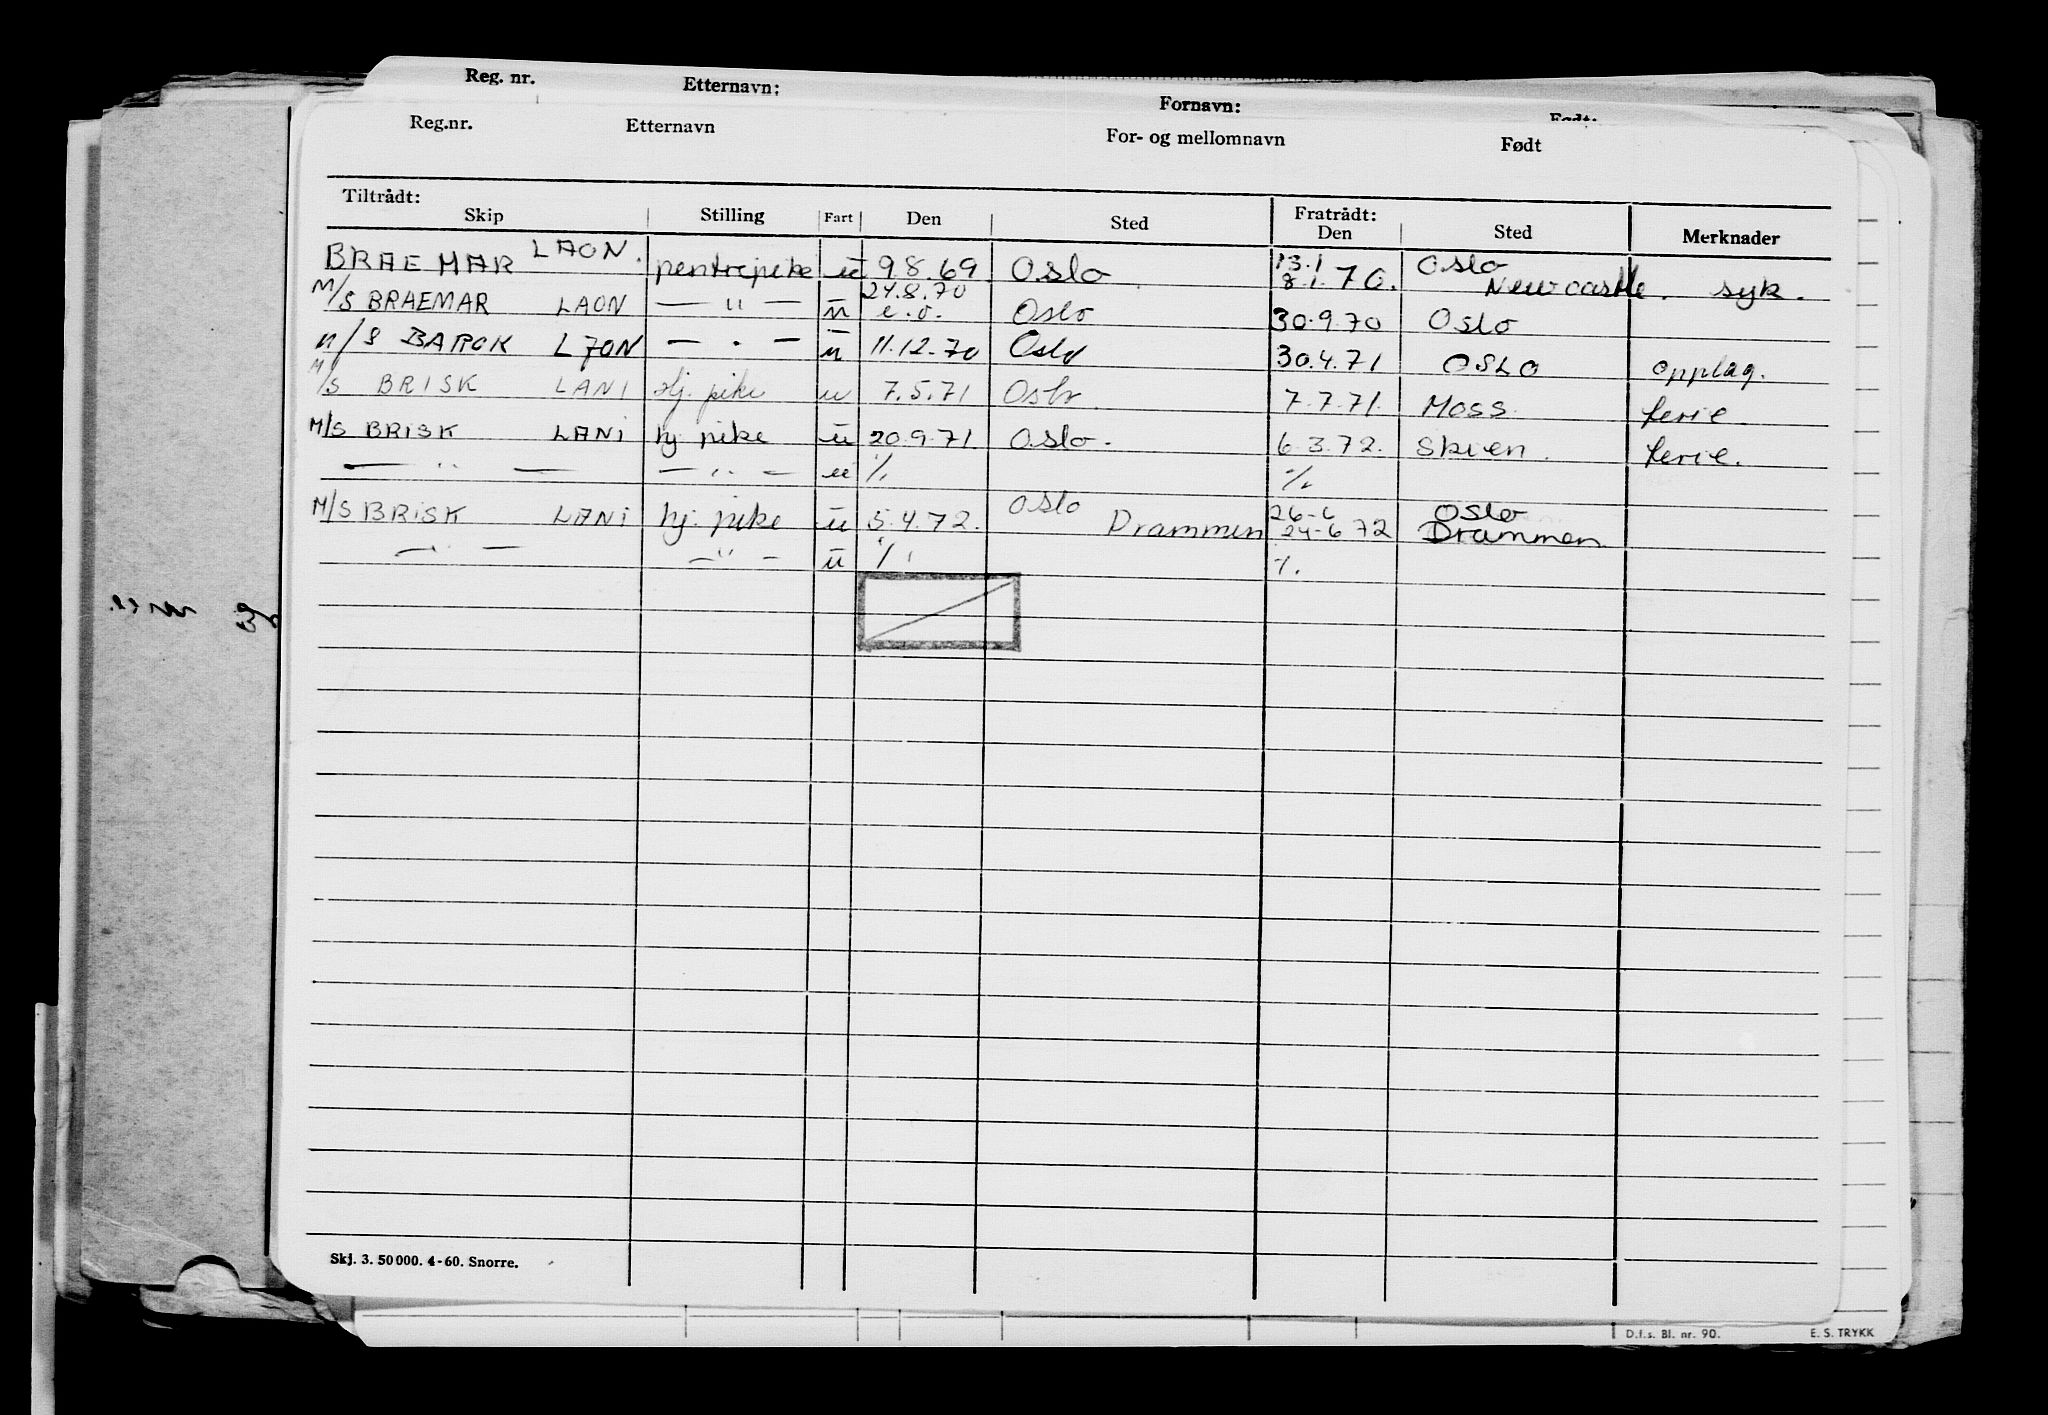 Reg. nr. Etternavn: Fornavn: Født:
Reg.nr. Etternavn For- og mellomnavn Født
Tiltrådt: Fratrådt:
Skip Stilling Fart Den Sted Den Sted Merknader
BRAEMAR LAON. pentrepike u 9.8.69 Oslo 13.1 8.1.70. Oslo Newcastle. syk.
M/S BRAEMAR LAON — " — u 24.8.70 e.o. Oslo 30.9.70 Oslo
M/S BAROK LJON — " — u 11.12.70 Oslo 30.4.71 OSLO opplag.
M/S BRISK LANI hj. pike u 7.5.71 Oslo 7.7.71. Moss. ferie.
M/S BRISK LANI hj pike u 20.9.71 Oslo. 6.3.72. Skien. ferie.
— " — — " — u % %
M/S BRISK LANI hj. pike u 5.4.72. Oslo Drammen 26-6 24-6 72 Oslo Drammen
— " — — " — u % %
Skj. 3. 50 000. 4-60. Snorre.
D.f.s. Bl. nr. 90. E. S. TRYKK